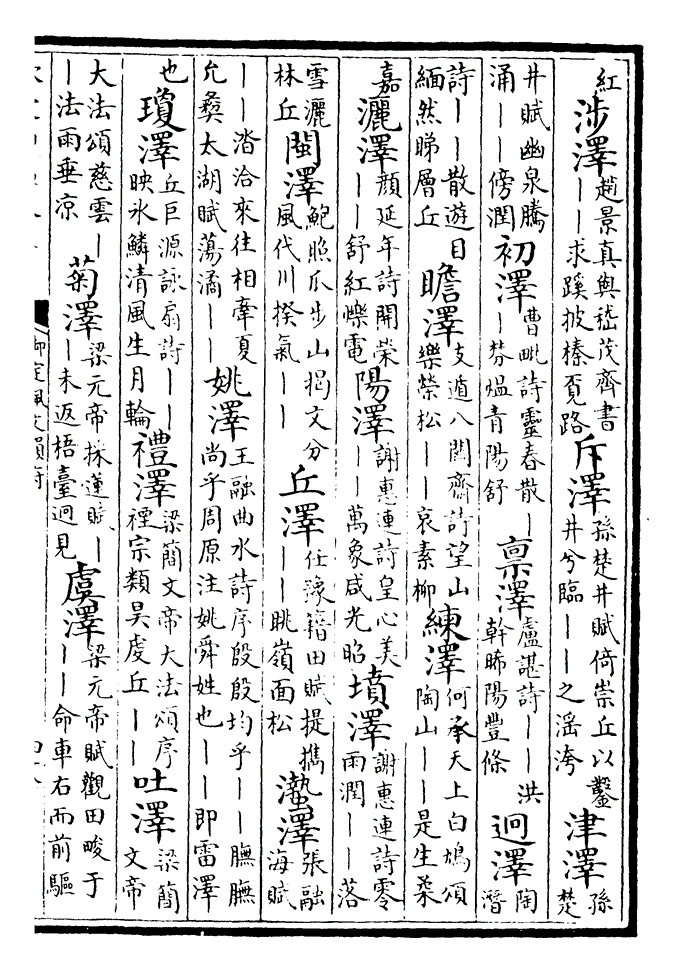 紅
涉澤
趙景真與嵇茂齊書
——求蹊披榛覓路
斥澤
孫楚井賦倚崇丘以鑿
井兮臨——之滛洿
津澤
孫
楚
井賦幽泉騰
涌——傍潤
初澤
曹毗詩靈春散—
—芬熅青陽舒
稟澤
盧諶詩——洪
幹晞陽豐條
迥澤
陶
潛
詩——散遊目
緬然睇層丘
瞻澤
支遁八關齋詩望山
樂榮松——哀素柳
練澤
何承天上白鳩頌
陶山——是生柔
嘉
灑澤
顏延年詩開榮
——舒紅爍電
陽澤
謝惠連詩皇心美
——萬象咸光昭
墳澤
謝惠連詩零
雨潤——落
雪灑
林丘
閩澤
鮑照瓜步山楬文分
風代川揆氣——
丘澤
任豫籍田賦提攜
——眺嶺面松
澤
張融
海賦
——涾洽來往相 夏
允彝太湖賦蕩潏——
姚澤
王融曲水詩序殷殷均乎——膴膴
尚乎周原注姚舜姓也——即雷澤
也
瓊澤
丘巨源詠扇詩——
映氷鱗清風生月輪
禮澤
梁簡文帝大法頌序
禋宗類昊虔丘——
吐澤
梁簡
文帝
大法頌慈雲—
—法雨垂凉
菊澤
梁元帝採蓮賦—
—未返梧臺迥見
虞澤
梁元帝賦觀田畯于
——命車右而前驅
御定佩文韻府